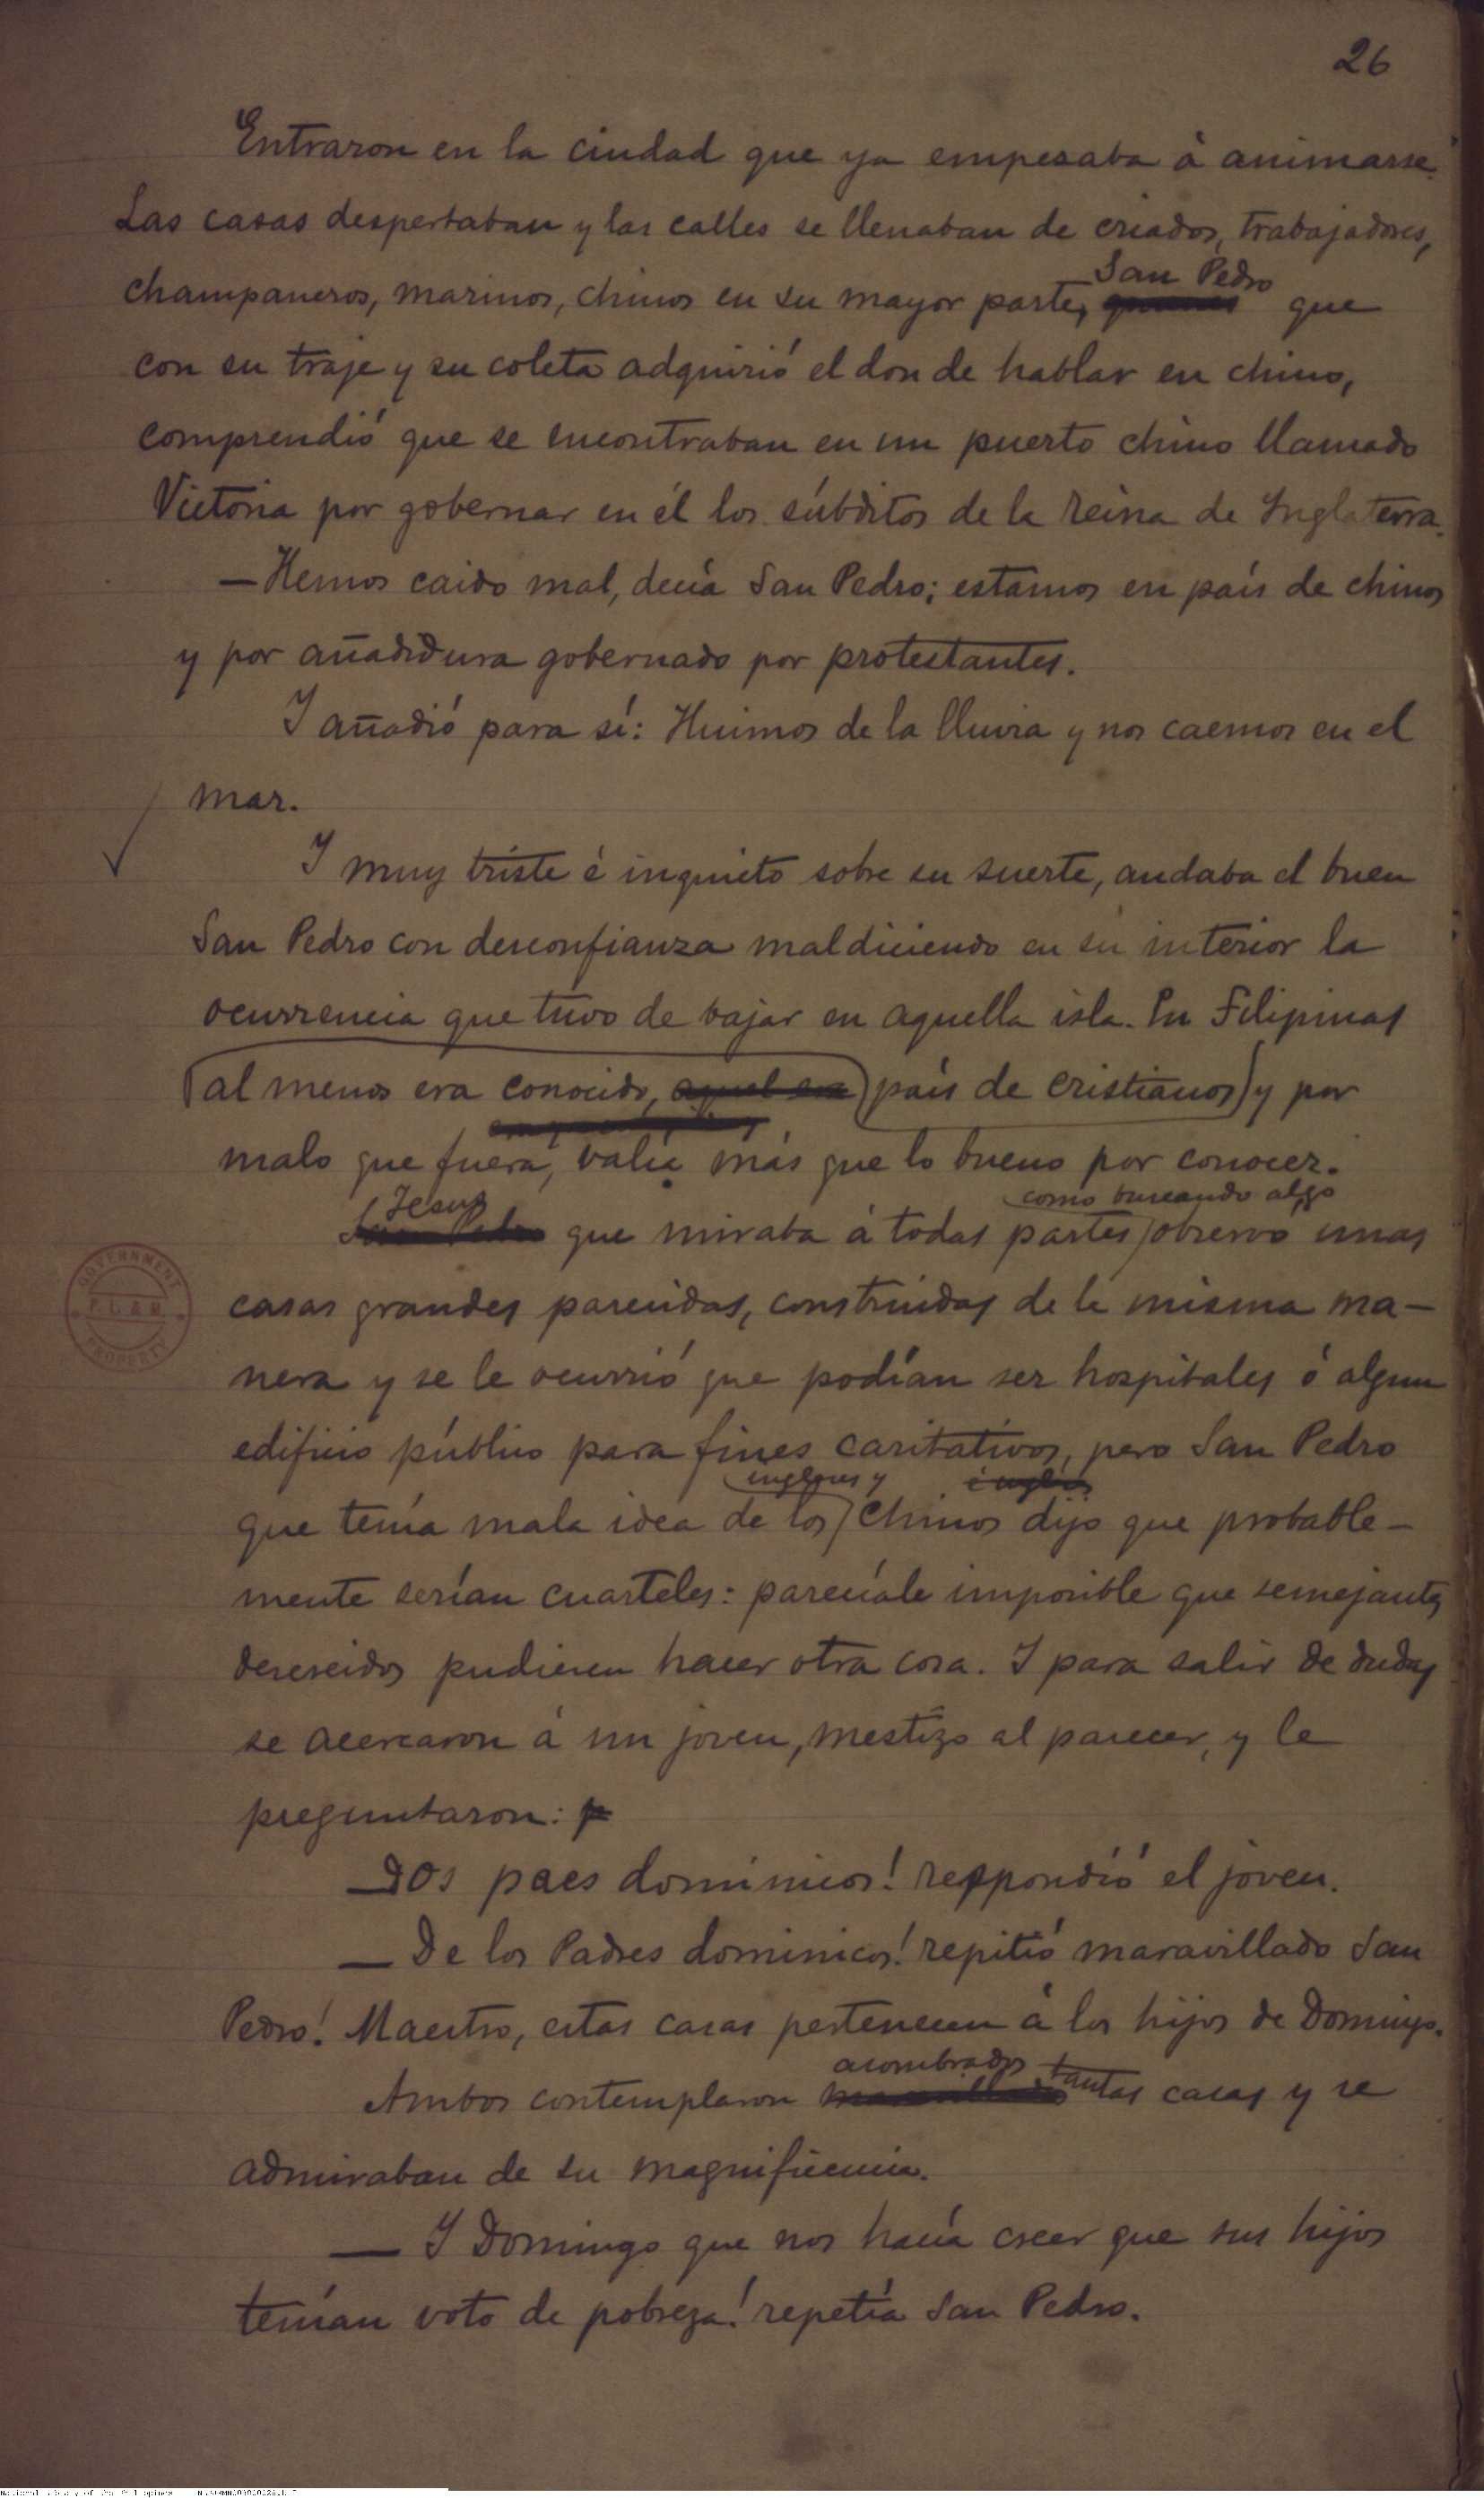 26
Entraron en la ciudad que ya empezaba á animarse.
Las casas despertaban y las calles se llenaban de criados, trabajadores,
San Pedro
champaneros, marinos, chinos en su mayor parte, que
con su traje y su coleta adquirió el don de hablar en chino,
comprendió que se encontraban en un puerto chino llamado
Victoria por gobernar en él los súbditos de la reina de Inglaterra.
—Hemos caido mal, decía San Pedro; estamos en país de chinos
y por añadidura gobernado por protestantes.
I añadió para sí: Huimos de la lluvia y nos caemos en el
mar.
I muy triste é inquieto sobre su suerte, andaba el buen
San Pedro con desconfianza maldiciendo en su interior la
ocurrencia que tuvo de bajar en aquella isla. En Filipinas
al menos era conocido, aquel era país de cristianos y por
malo que fuera, valía más que lo bueno por conocer.
Jesus como buscando algo
San Pedro que miraba á todas partes observó unas
casas grandes parecidas, construidas de la misma ma-
nera y se le ocurrió que podían ser hospitales ó algun
edificio público para fines caritativos, pero San Pedro
ingleses y é ingleses
que tenía mala idea de los Chinos dijo que probable-
mente serían cuarteles: parecíale imposible que semejantes
descreidos pudiesen hacer otra cosa. I para salir de dudas
se acercaron á un joven, mestizo al parecer, y le
preguntaron:
—Dos paes dominicos! respondió el joven.
—De los Padres dominicos! repitió maravillado San
Pedro! Maestro, estas casas pertenecen á los hijos de Domingo.
asombrados
Ambos contemplaron maravillados tantas casas y se
admiraban de su magnificencia.
— I Domingo que nos hacía creer que sus hijos
tenían voto de pobreza! repetía San Pedro.
GOVERNMENT
P. L. & M.
PROPERTY
National Library of the Philippines